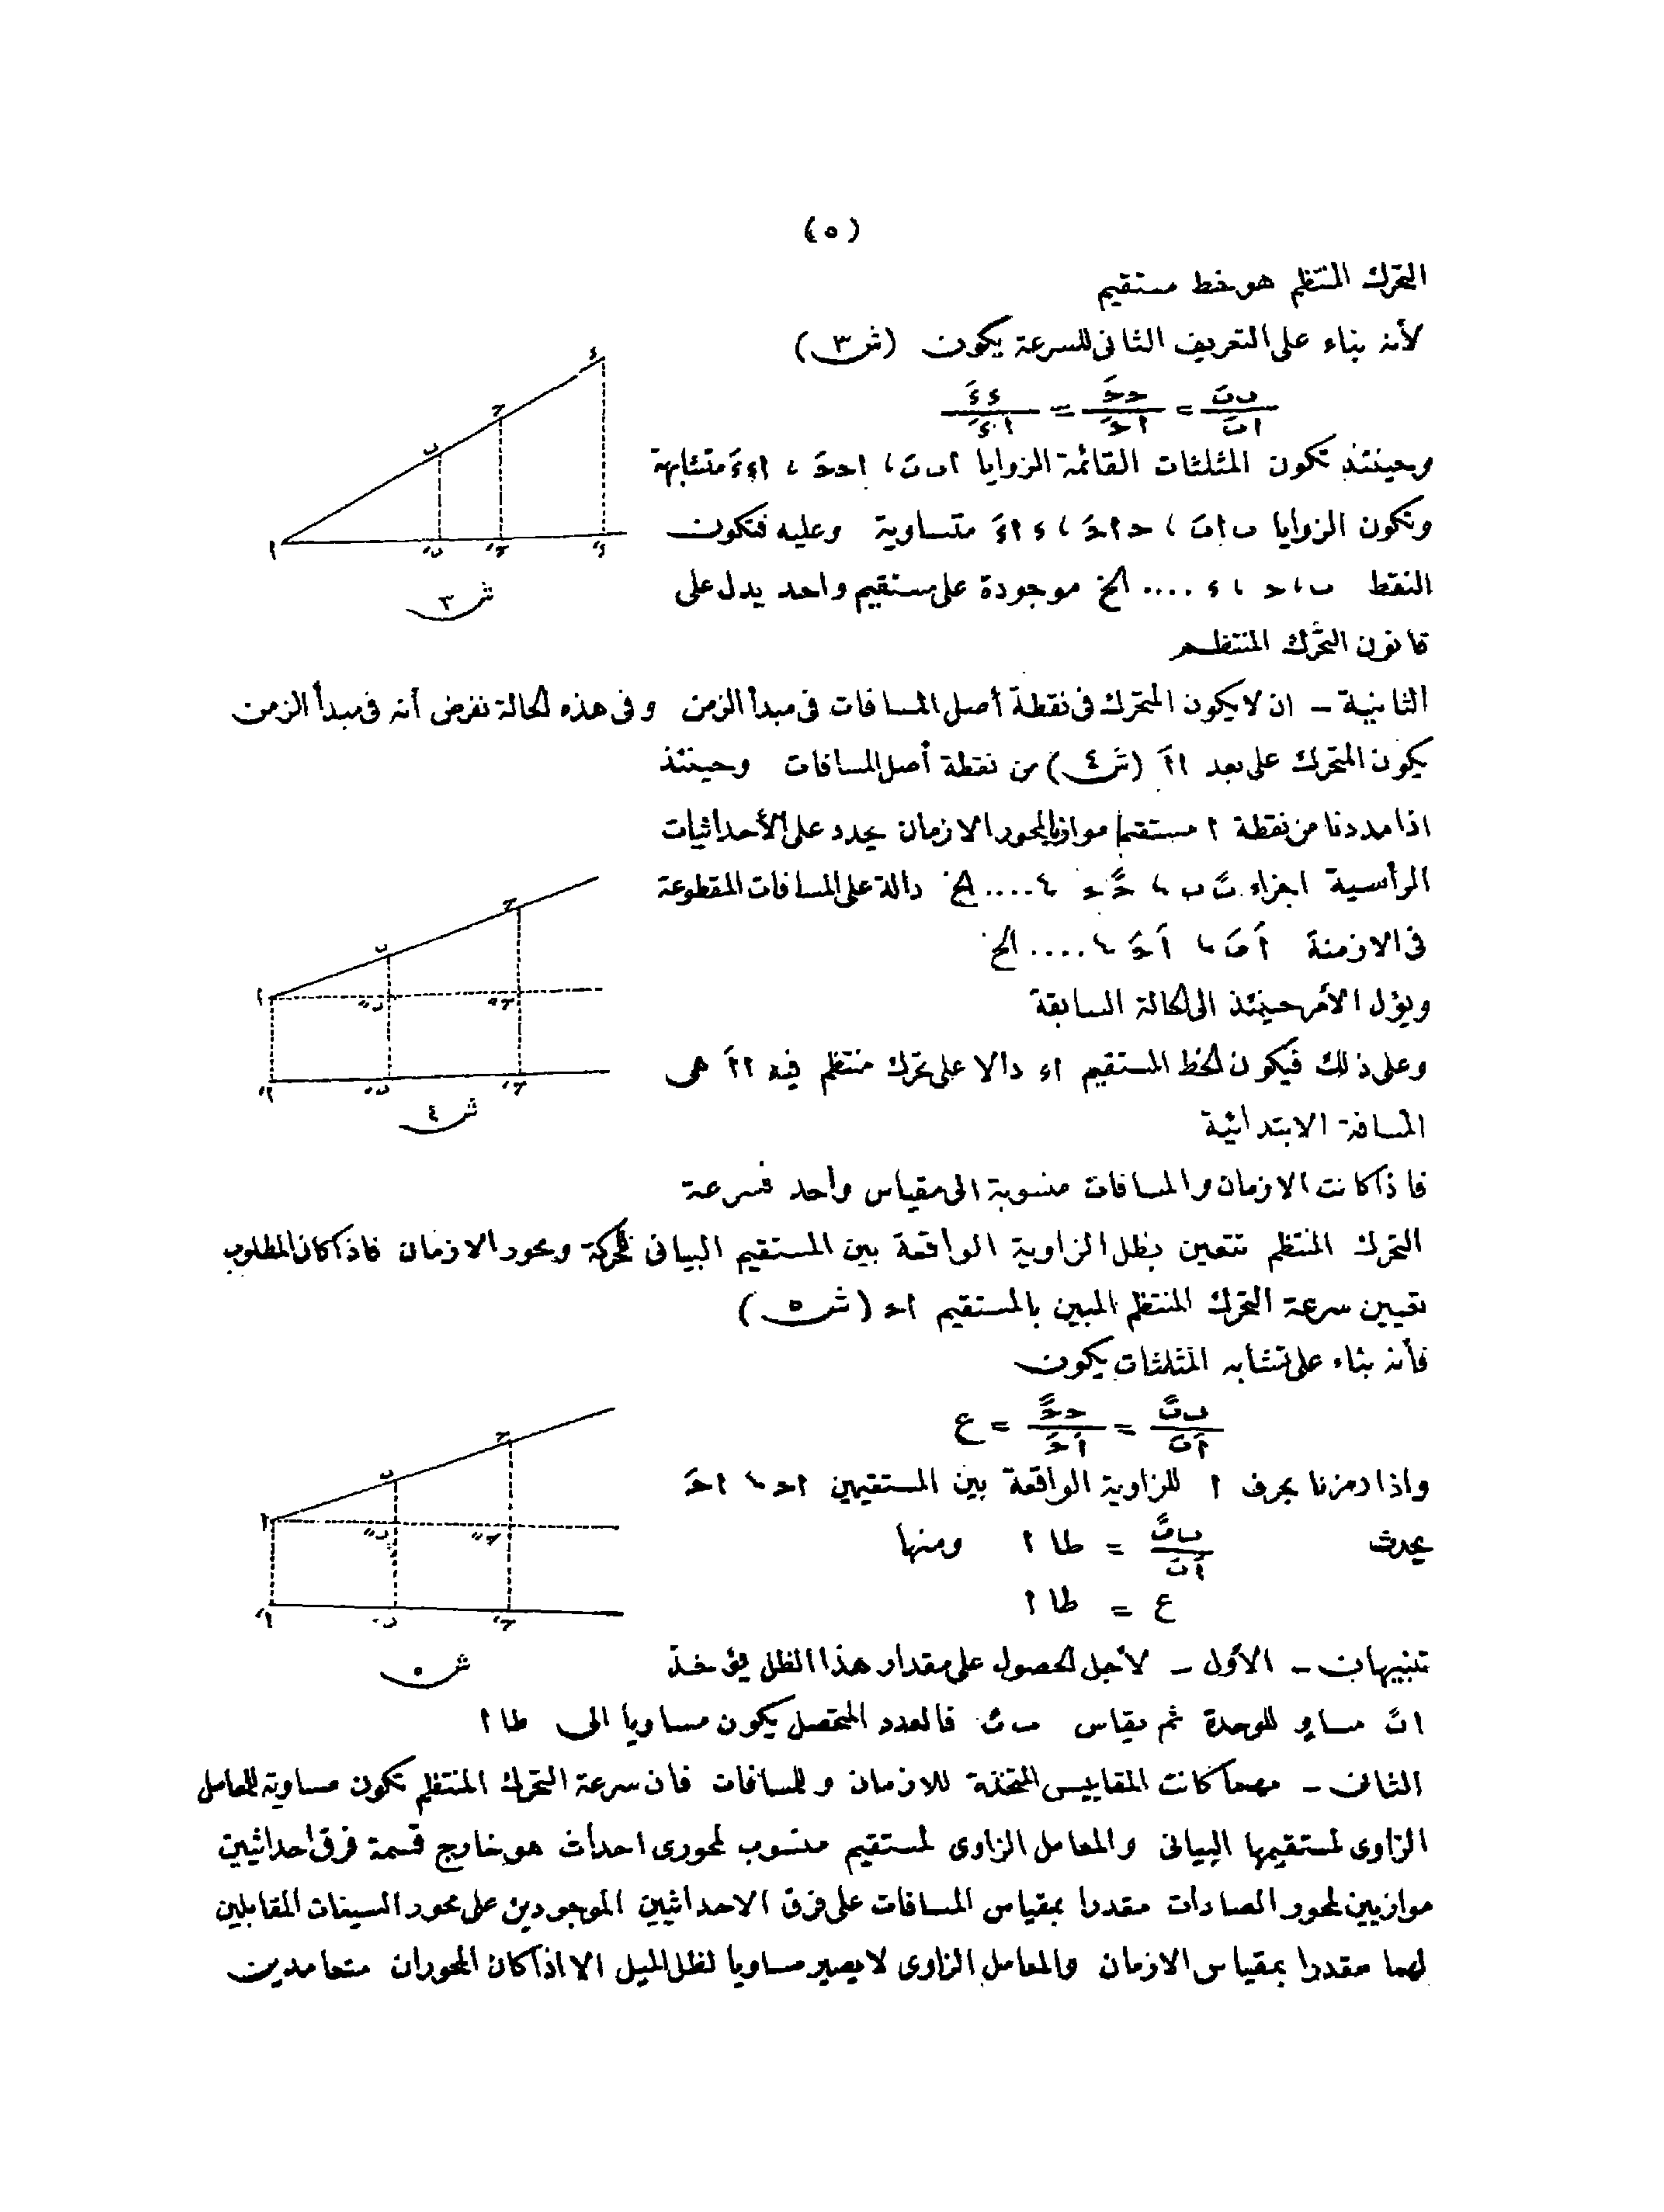 (٥)
التحرك المنتظم هو خط مستقيم
لأنه بناء على التعريف الثانى للسرعة يكون (ش ٣)
ب بَ / ا بَ = حـ حـَ / ا حـَ = ء ءَ / ا ءَ
وحينئذ تكون المثلثات القائمة الزوايا ا ب بَ ، ا حـ حـَ ، ا ء ءَ متشابهة
وتكون الزوايا ب ا بَ ، حـ ا حـَ ، ء ا ءَ متساوية وعليه فتكون
النقط ب ، حـ ، ء .... الخ موجودة على مستقيم واحد يدل على
قانون التحرك المنتظم
الثانية - ان لا يكون المتحرك فى نقطة أصل المسافات فى مبدأ الزمن وفى هذه الحالة نفرض أنه فى مبدأ الزمن
يكون المتحرك على بعد ا اَ (ش ٤) من نقطة أصل المسافات وحينئذ
اذا مددنا من نقطة ا مستقيما موازيا لمحور الازمان يحدد على الأحداثيات
الرأسية اجزاء بً ب ، حـً حـ ، .... الخ دالة على المسافات المقطوعة
فى الازمنة اَ بَ ، اَ حـَ ، .... الخ
ويؤل الأمر حينئذ الى الحالة السابقة
وعلى ذلك فيكون الخط المستقيم ا ء دالا على تحرك منتظم فيه ا اَ هى
المسافة الابتدائية
فاذا كانت الازمان والمسافات منسوبة الى مقياس واحد فسرعة
التحرك المنتظم تتعين بظل الزاوية الواقعة بين المستقيم البيانى للحركة ومحور الازمان فاذا كان المطلوب
تعيين سرعة التحرك المنتظم المبين بالمستقيم ا حـ (ش ٥)
فأنه بناء على تشابه المثلثات يكون
ب بً / اَ بَ = حـ حـً / اَ حـَ = ع
واذا رمزنا بحرف ا للزاوية الواقعة بين المستقيمين ا حـ ، ا حـَ
يحدث ب بً / اَ بَ = طا ا ومنها
ع = طا ا
تنبيهات - الأول - لأجل الحصول على مقدار هذا الظل يؤخذ
ا بً مساو للوحدة ثم يقاس ب بً فالعدد المتحصل يكون مساويا الى طا ا
الثانى - مهما كانت المقاييس المتخذة للازمان وللمسافات فان سرعة التحرك المنتظم تكون مساوية للمعامل
الزاوى لمستقيمها البيانى والمعامل الزاوى لمستقيم منسوب لمحورى احداث هو خارج قسمة فرق احداثيين
موازيين لمحور الصادات مقدرا بمقياس المسافات على فرق الاحداثيين الموجودين على محور السينات المقابلين
لهما مقدرا بمقياس الازمان والمعامل الزاوى لا يصير مساويا لظل الميل الا اذا كان المحوران متعامدين
ا ب حـ ء بَ حـَ ءَ
ش ٣
ا ب حـ بً حـً اَ بَ حـَ
ش ٤
ا ب حـ بً حـً اَ بَ حـَ
ش ٥